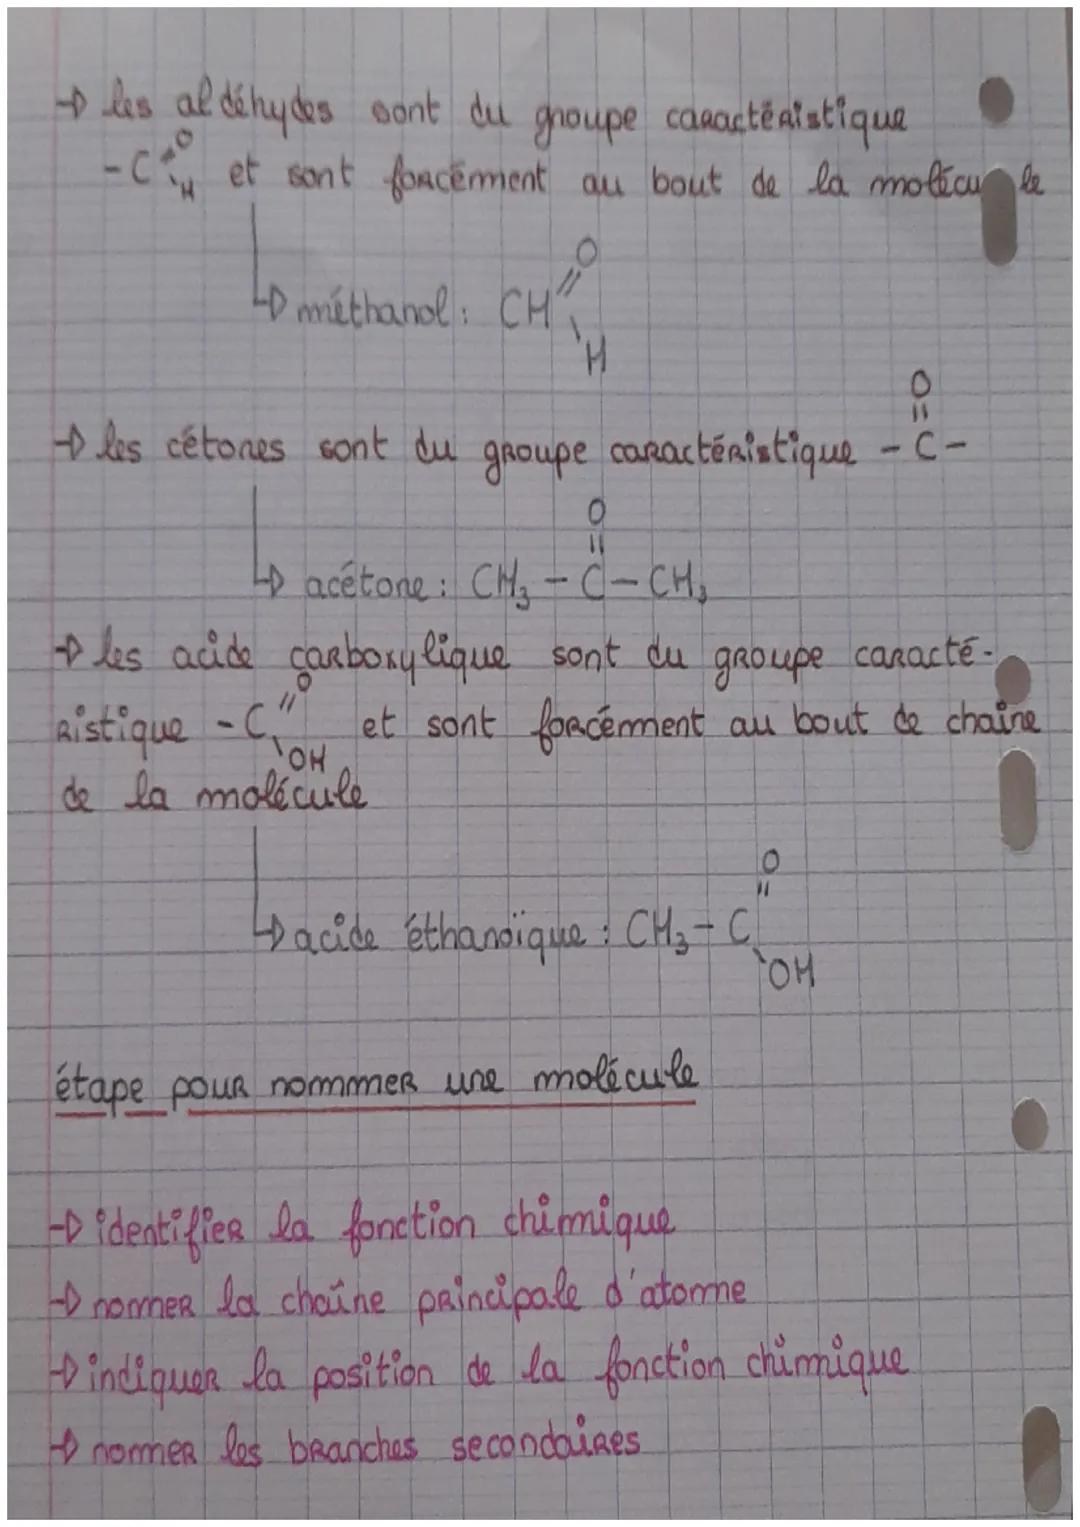 → les aldéhydes sont du groupe caractéristique
-C=O H et sont forcément au bout de la molécule
↳ méthanol : CH=O H
→ les cétones sont du groupe caractéristique -C(=O)-
↳ acétone : CH₃ - C(=O) - CH₃
→ les acide carboxylique sont du groupe caracté-
ristique -C=O OH et sont forcément au bout de chaîne
de la molécule
↳ acide éthanoïque : CH₃ - C=O OH
étape pour nommer une molécule
→ identifier la fonction chimique
→ nommer la chaîne principale d'atome
→ indiquer la position de la fonction chimique
→ nommer les branches secondaires